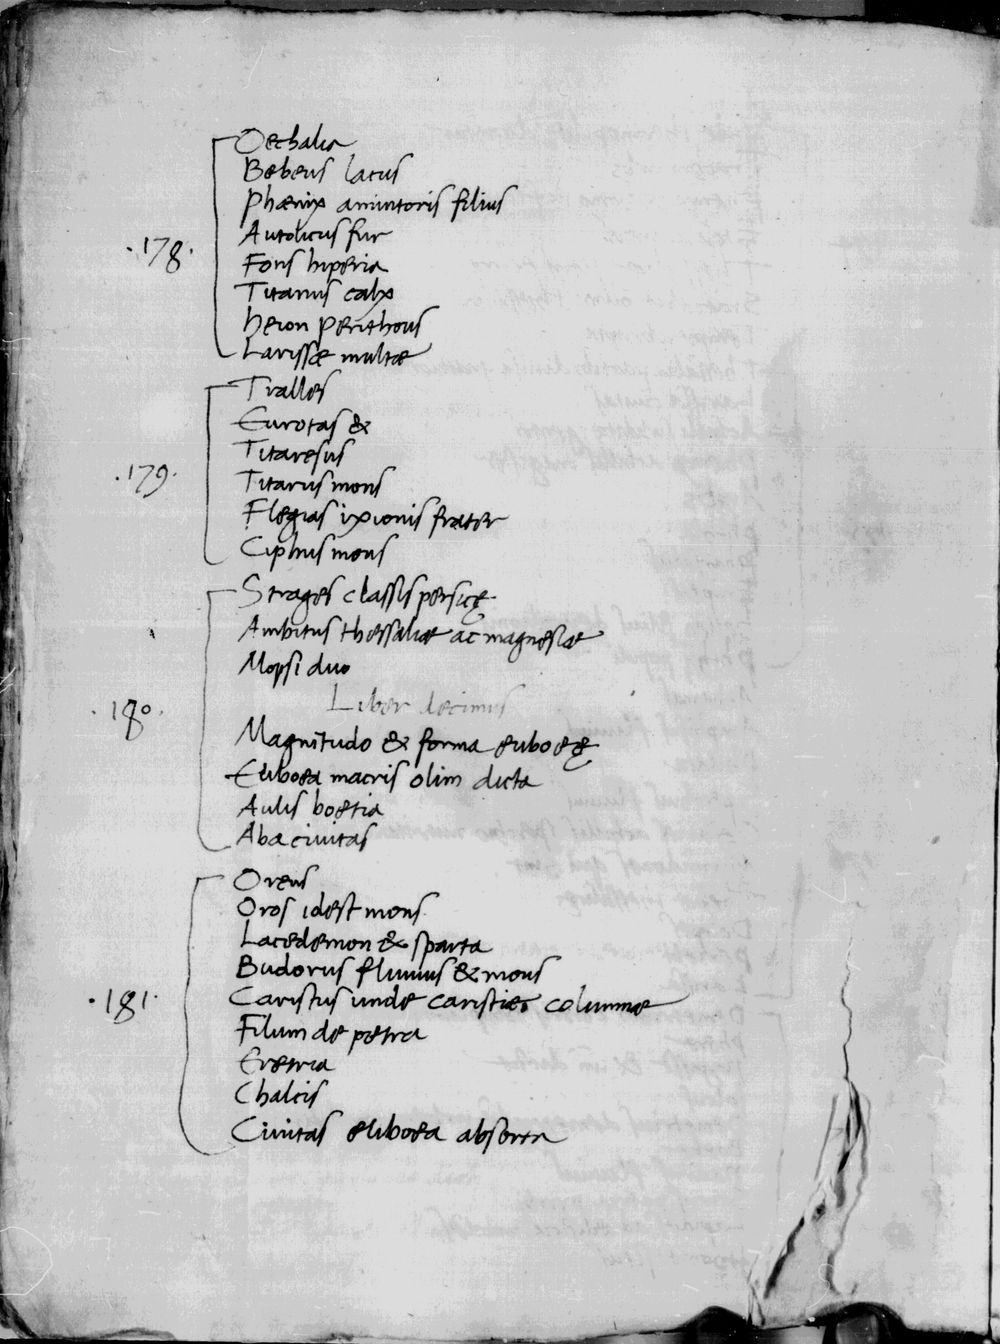 Oechalia
Bebeus lacus
Phœnix amintoris filius
Autolicus fur
.178. Fons hiperia
Titanus calx
heron perithous
Larissæ multæ
Tralles
Eurotas &
Titaresus
.179. Titarus mons
Flegias ixionis frater
Ciphus mons
Strages classis persicę
Ambitus thessaliæ ac magnesiæ
Mopsi duo
.180. Liber decimus
Magnitudo & forma euboeę
Euboea macris olim dicta
Aulis boetia
Aba civitas
Oreus
Oros idest mons
Lacedemon & sparta
Budorus fluvius & mons
.181. Caristus unde caristies columnæ
Filum de petra
Eretria
Chalcis
Civitas euboea absorta